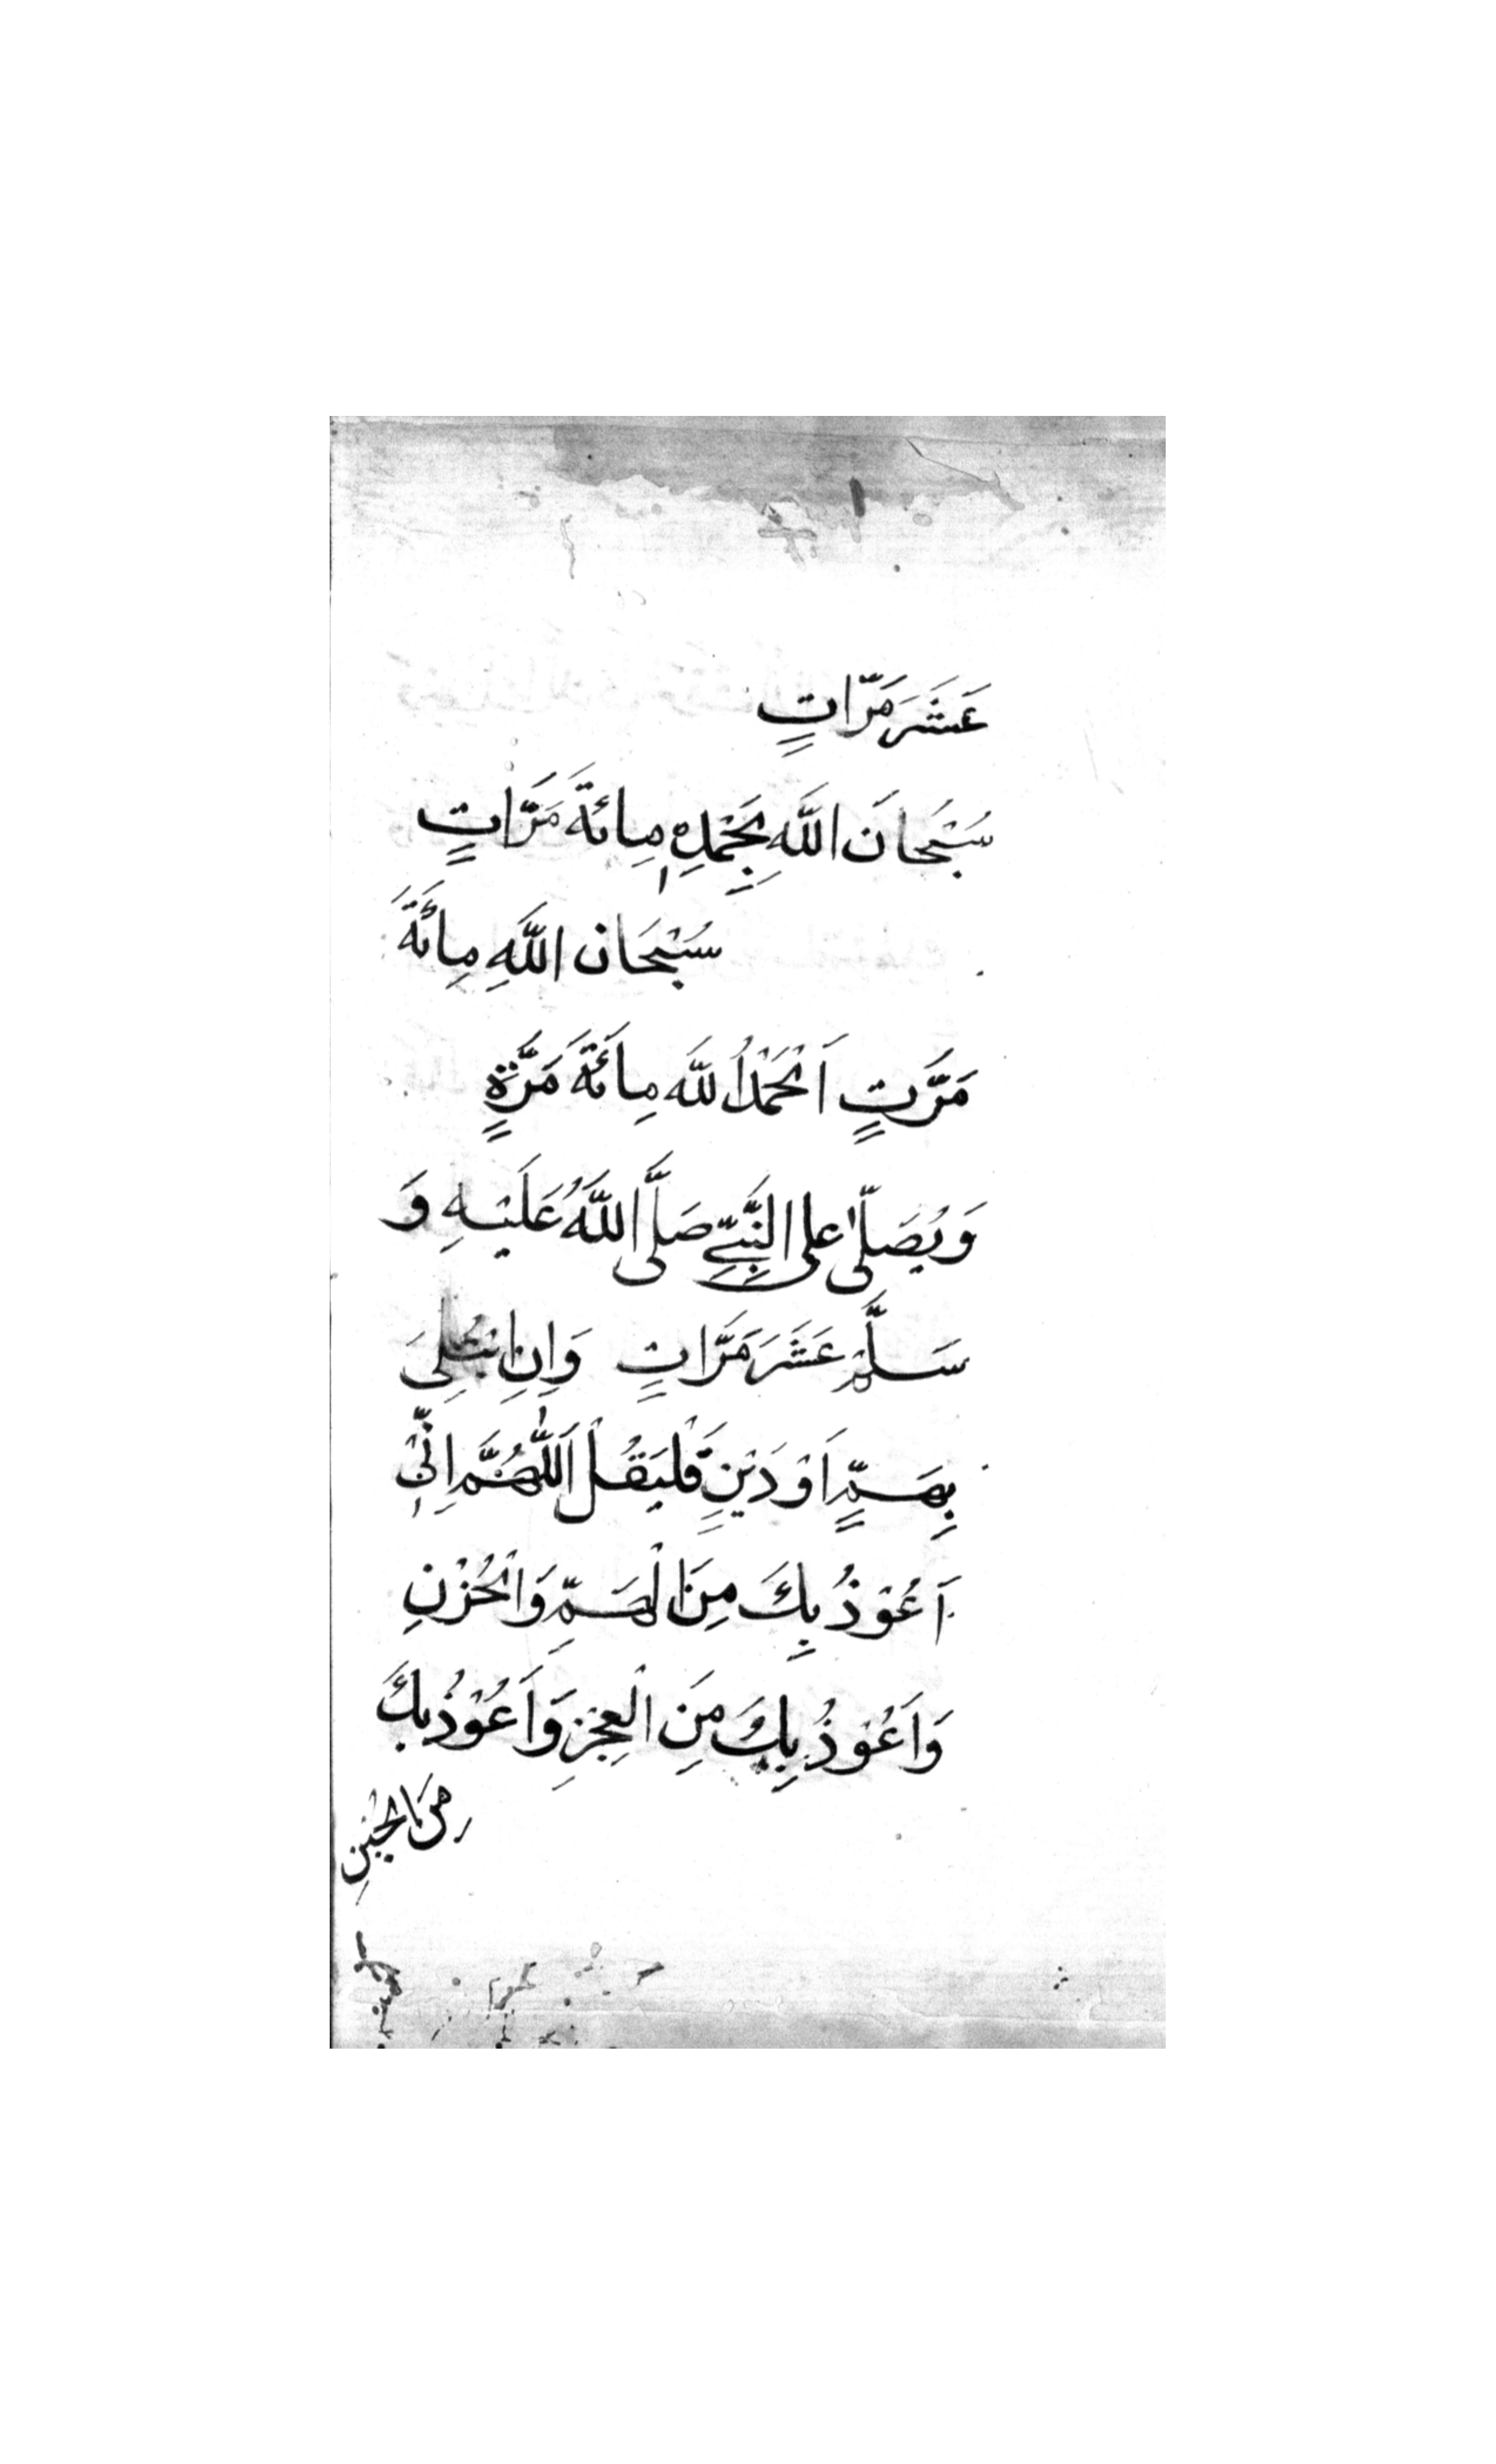 عَشَرَ مَرَّاتٍ
سُبْحَانَ اللَّهِ بِحَمْدِهٖ مِائَةَ مَرَّاتٍ
سُبْحَان اللَّهِ مِائَةَ
مَرَّتٍ اَلْحَمْدُ لِلَّه مِائَةَ مَرَّةٍ
وَيُصَلّىٰ على النَّبِيِّ صَلَّى اللَّهُ عَلَيْهِ وَ
سَلَّمَ عَشَرَ مَرَّاتٍ وَاِنِ ابْتُلِىَ
بِهَمٍّ اَوْ دَيْنٍ فَلْيَقُلْ اَللّٰهُمَّ اِنِّىْ
اَعُوْذُ بِكَ مِنَ الْهَمِّ وَالْحُزْنِ
وَاَعُوْذُ بِكَ مِنَ الْعِجْزِ وَاَعُوْذُ بِكَ
مِنَ الْجُبْنِ